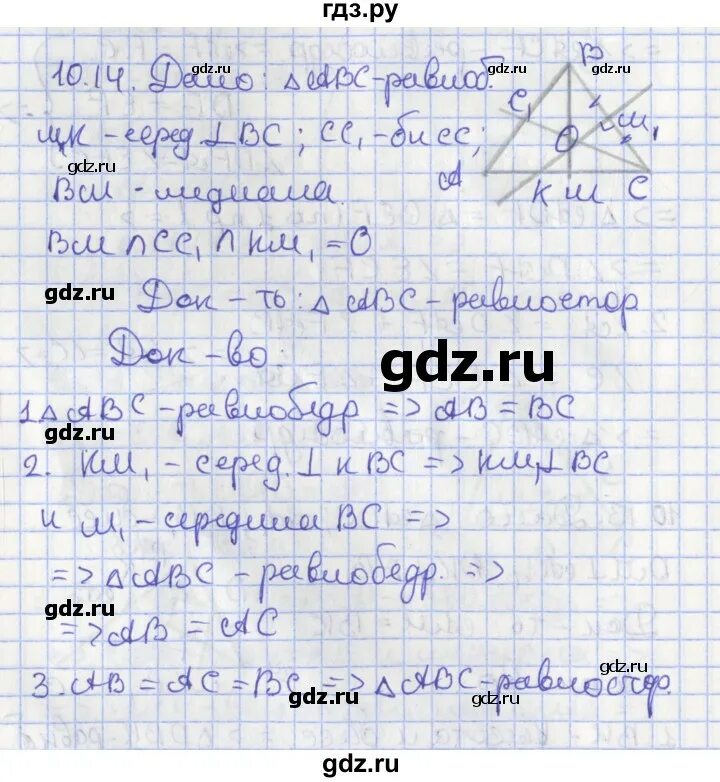 гдз.ру
10.14. Дано: △ABC-равноб.
MK - серед ⊥ BC; CC₁ - бисс;
BM - медиана.
BM ∩ CC₁ ∩ KM₁ = O
B
C₁
M₁
O
A
K M C
Док - ть: △ ABC - равностор
Док - во:
1. △ ABC - равнобедр => AB = BC
2. KM₁ - серед. ⊥ к BC => KM₁⊥BC
и M₁ - середина BC =>
=> △ ABC - равнобедр. =>
=> AB = AC
3. AB = AC = BC => △ ABC-равностор.
gdz.ru
gdz.ru
gdz.ru
gdz.ru
gdz.ru
gdz.ru
gdz.ru
gdz.ru
gdz.ru
gdz.ru
gdz.ru
gdz.ru